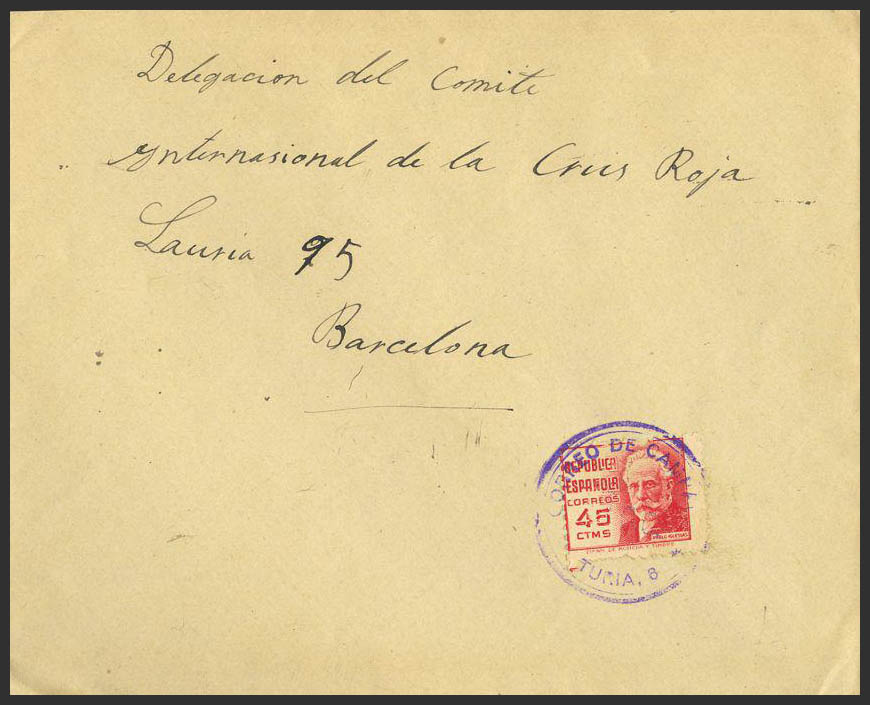 Delegacion del Comite
Ynternasional de la Cruis Roja
Lauria 95
Barcelona
CORREO DE
REPUBLICA
ESPAÑOLA
CORREOS
45
CTMS
PABLO IGLESIAS
TURIA, 8